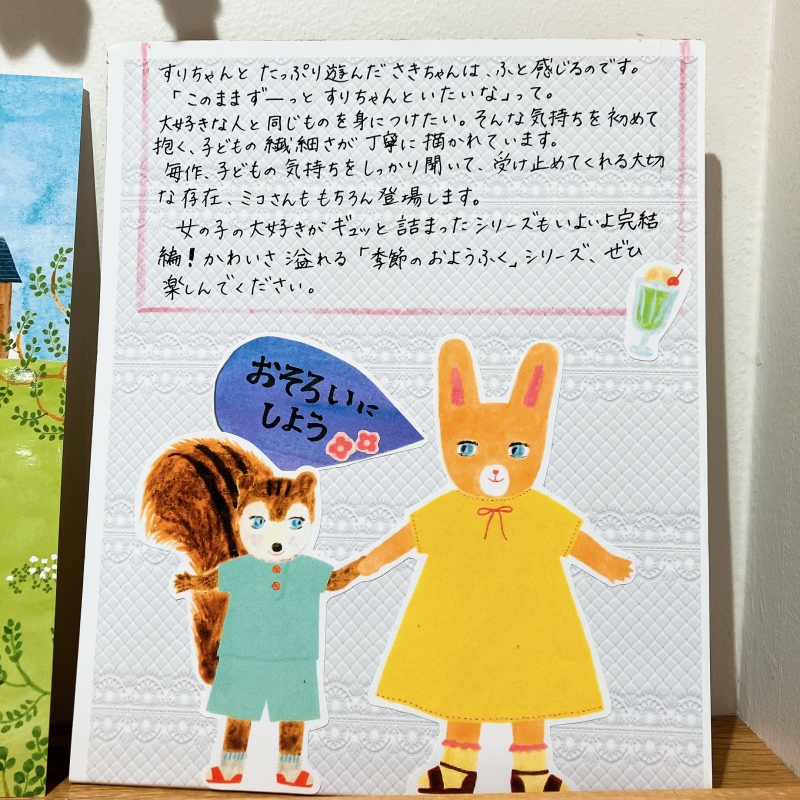 すりちゃんと たっぷり遊んだ さきちゃんは、ふと感じるのです。
「このままずーっと すりちゃんといたいな」って。
大好きな人と同じものを身につけたい。そんな気持ちを初めて
抱く、子どもの繊細さが丁寧に描かれています。
毎作、子どもの気持ちをしっかり聞いて、受け止めてくれる大切
な存在、ミコさんももちろん登場します。
女の子の大好きがギュッと詰まったシリーズもいよいよ完結
編!かわいさ溢れる「季節のおようふく」シリーズ、ぜひ
楽しんでください。
おそろいに
しよう